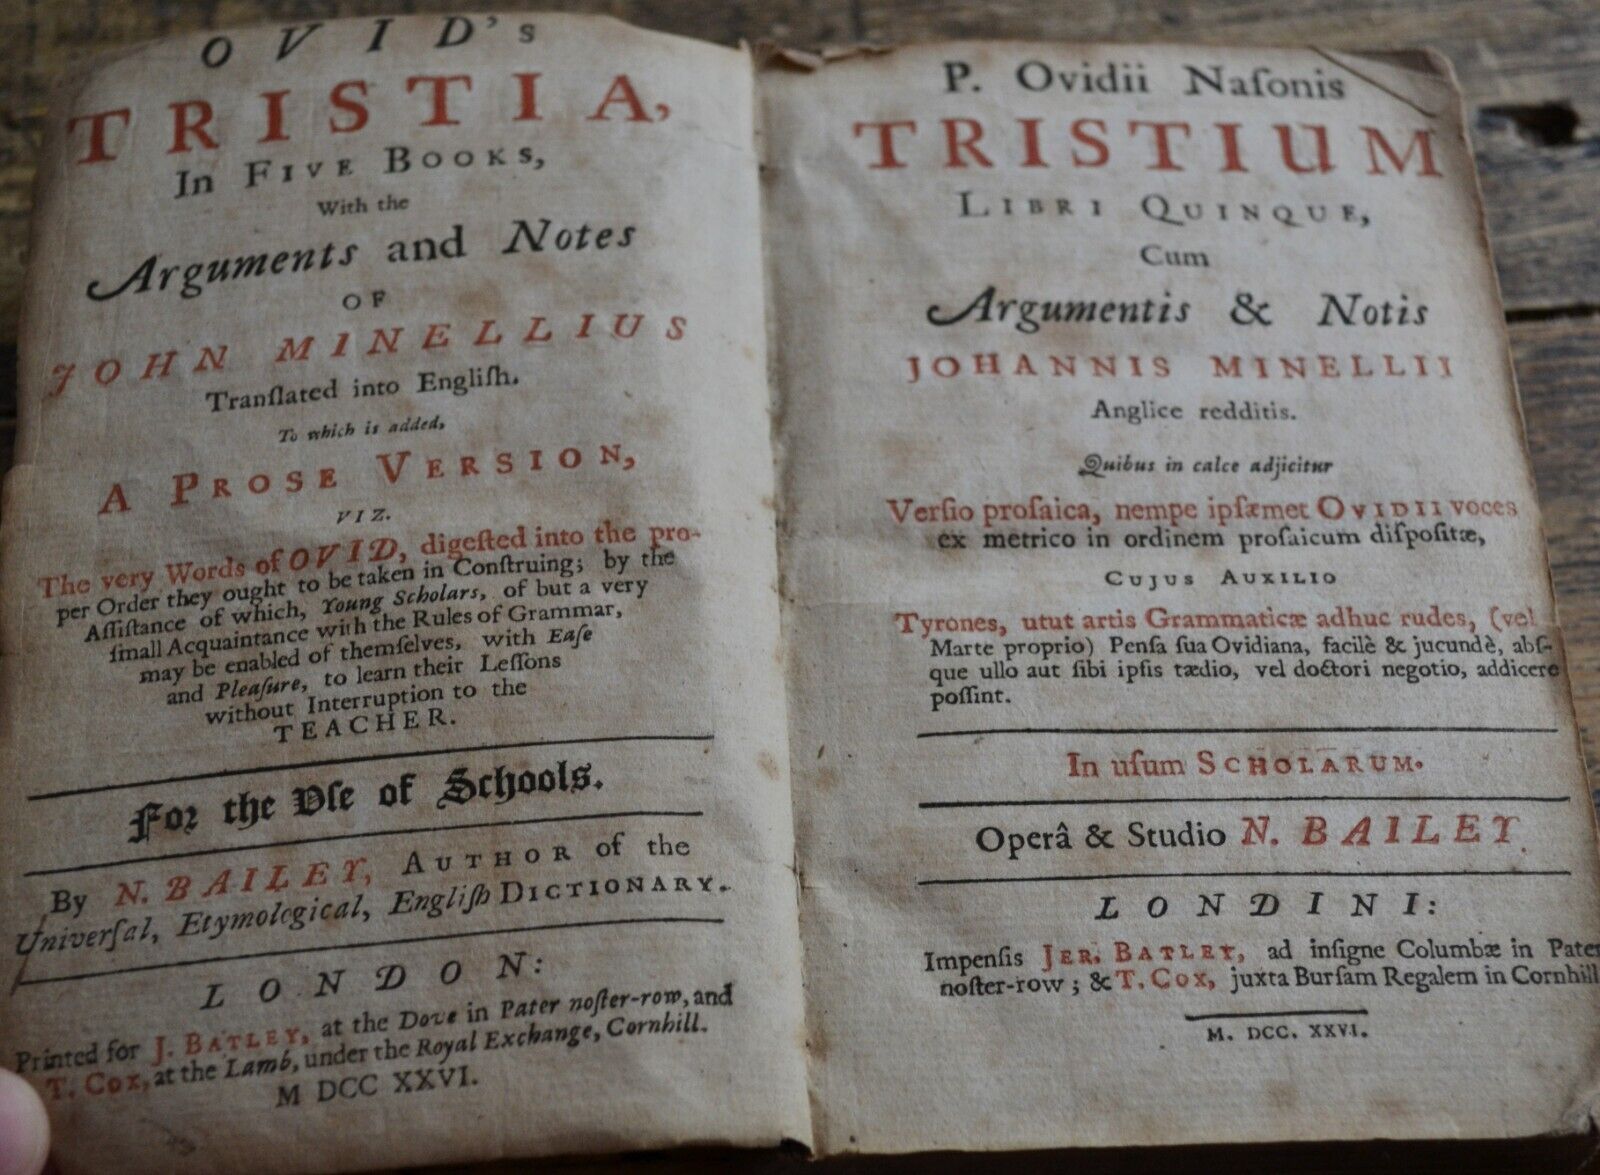 OVID's
TRISTIA,
In FIVE BOOKS,
With the
Arguments and Notes
OF
JOHN MINELLIUS
Tranſlated into Engliſh.
To which is added,
A PROSE VERSION,
VIZ.
The very Words of OVID, digeſted into the pro-
per Order they ought to be taken in Conſtruing; by the
Aſſiſtance of which, Young Scholars, of but a very
ſmall Acquaintance with the Rules of Grammar,
may be enabled of themſelves, with Eaſe
and Pleaſure, to learn their Leſſons
without Interruption to the
TEACHER.
For the Uſe of Schools.
By N. BAILEY, AUTHOR of the
Univerſal, Etymological, Engliſh DICTIONARY.
LONDON:
Printed for J. BATLEY, at the Dove in Pater noſter-row, and
T. COX, at the Lamb, under the Royal Exchange, Cornhill.
M DCC XXVI.
P. Ovidii Naſonis
TRISTIUM
LIBRI QUINQUE,
Cum
Argumentis & Notis
JOHANNIS MINELLII
Anglice redditis.
Quibus in calce adjicitur
Verſio proſaica, nempe ipſæmet OVIDII voces
ex metrico in ordinem proſaicum diſpoſitæ,
CUJUS AUXILIO
Tyrones, utut artis Grammaticæ adhuc rudes, (vel
Marte proprio) Penſa ſua Ovidiana, facilè & jucundè, abſ-
que ullo aut ſibi ipſis tædio, vel doctori negotio, addicere
poſſint.
In uſum SCHOLARUM.
Operâ & Studio N. BAILEY.
LONDINI:
Impenſis JER. BATLEY, ad inſigne Columbæ in Pater
noſter-row; & T. COX, juxta Burſam Regalem in Cornhill
M. DCC. XXVI.